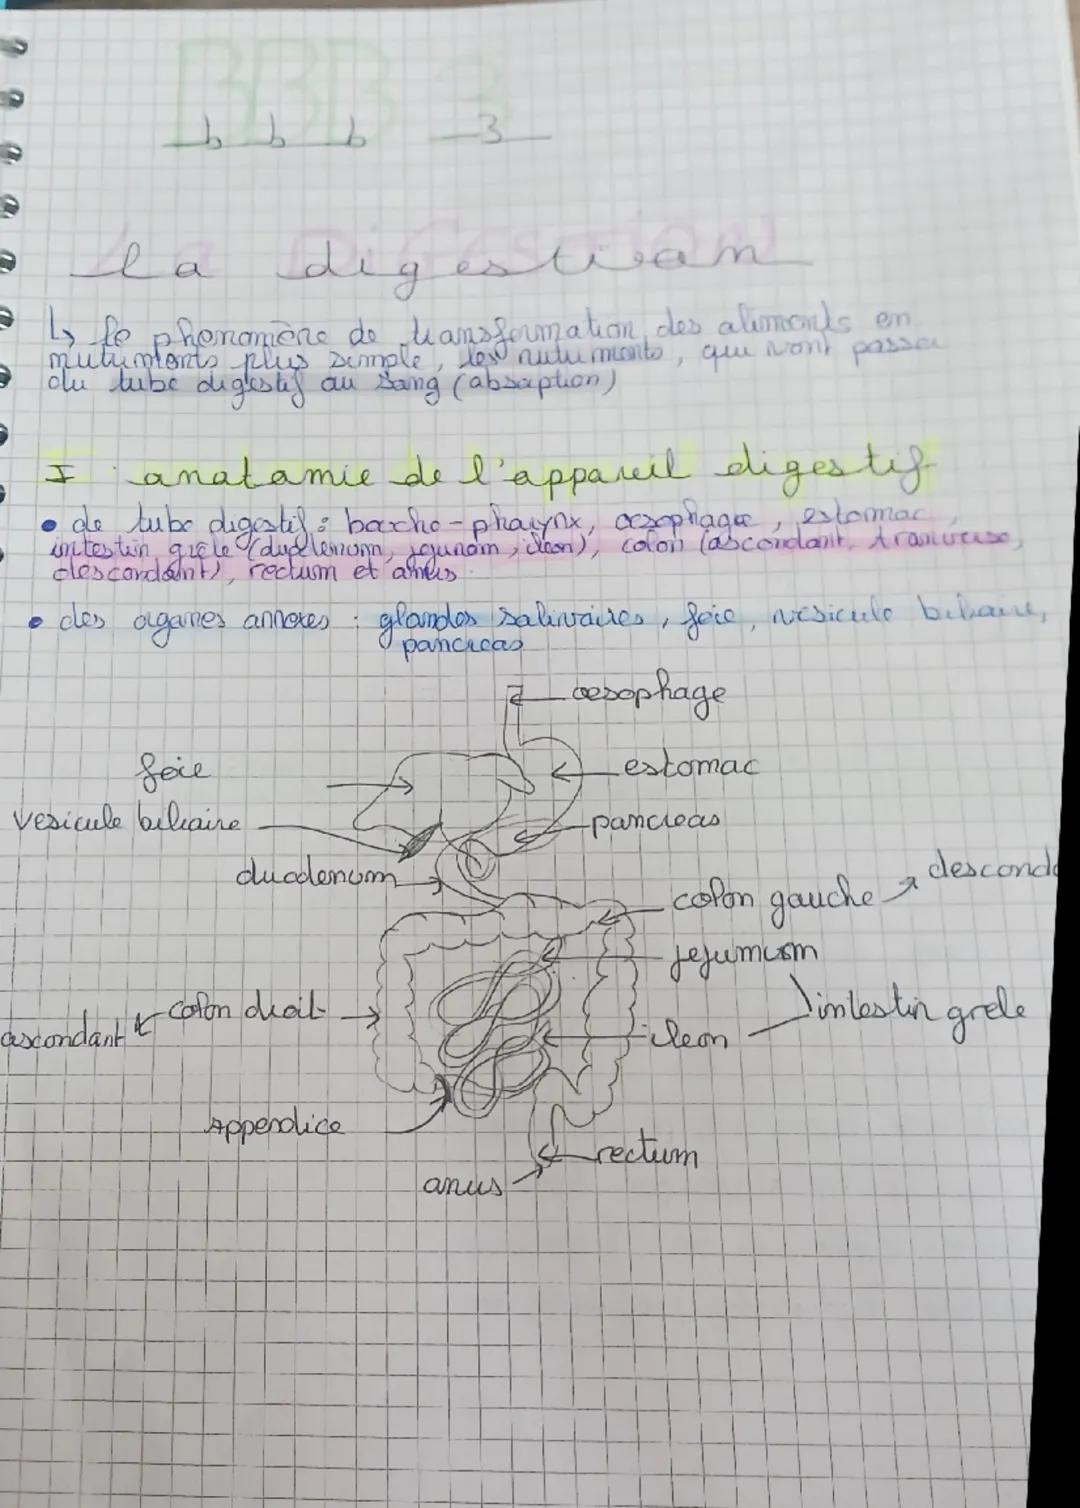 BBB 3
b b b 3
La DIGESTION
la digestion
↳ le phénomène de transformation des aliments en
nutriments plus simple, les nutriments, qui vont passer
du tube digestif au sang (absorption)
I : anatomie de l'appareil digestif
• de tube digestif : boucho-pharynx, oesophage, estomac,
intestin grêle (duodenom, jejunom, ileon), colon (ascendant, tranverse,
descendant), rectum et anus
• des organes annexes : glandes salivaires, foie, vésicule biliaire,
pancreas
oesophage
foie
estomac
vesicule biliaire
pancreas
duodenom
colon gauche → descend
jejunom
colon droit
ascendant
intestin grele
ileon
Appendice
rectum
anus